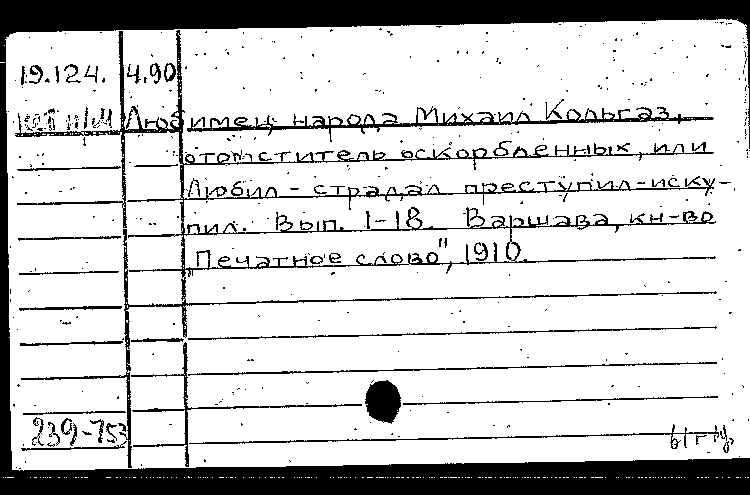 19.124. 4.90
нет н/м Любимец народа Михаил Кольгаз,
отомститель оскорбленных, или
Любил - страдал преступил-иску-
пил. Вып. 1-18. Варшава, кн-во
„Печатное слово", 1910.
239-753